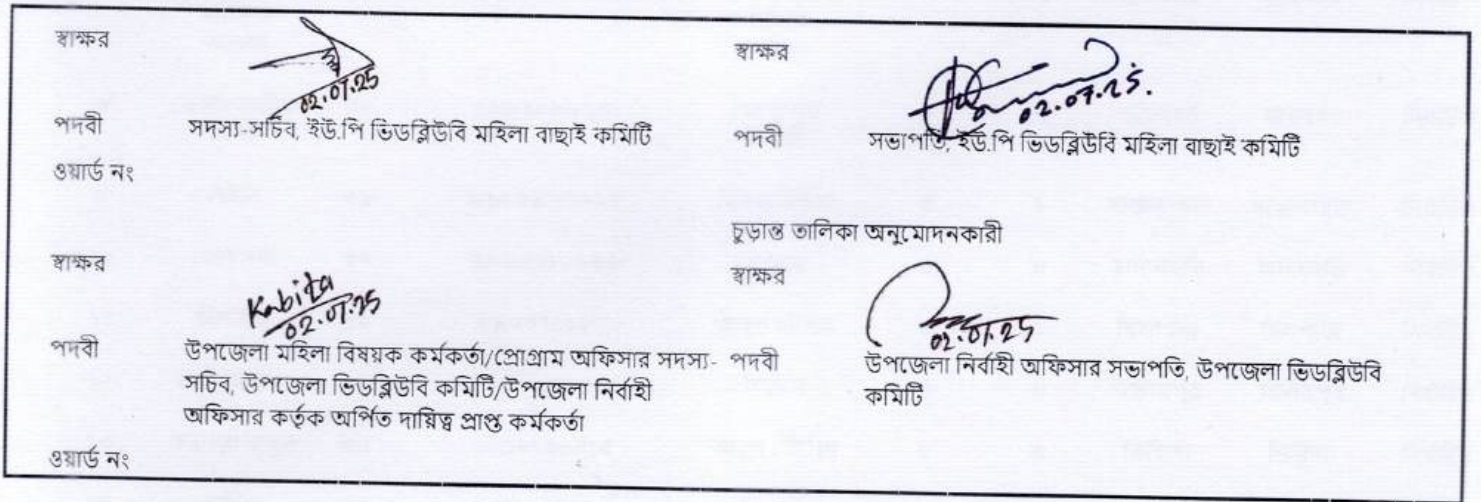 স্বাক্ষর
02.07.25
পদবী সদস্য-সচিব, ইউ.পি ভিডব্লিউবি মহিলা বাছাই কমিটি
ওয়ার্ড নং
স্বাক্ষর
02.07.25.
পদবী সভাপতি, ইউ.পি ভিডব্লিউবি মহিলা বাছাই কমিটি
স্বাক্ষর
Kabita
02.07.25
পদবী উপজেলা মহিলা বিষয়ক কর্মকর্তা/প্রোগ্রাম অফিসার সদস্য-
সচিব, উপজেলা ভিডব্লিউবি কমিটি/উপজেলা নির্বাহী
অফিসার কর্তৃক অর্পিত দায়িত্ব প্রাপ্ত কর্মকর্তা
ওয়ার্ড নং
চুড়ান্ত তালিকা অনুমোদনকারী
স্বাক্ষর
02.07.25
পদবী উপজেলা নির্বাহী অফিসার সভাপতি, উপজেলা ভিডব্লিউবি
কমিটি